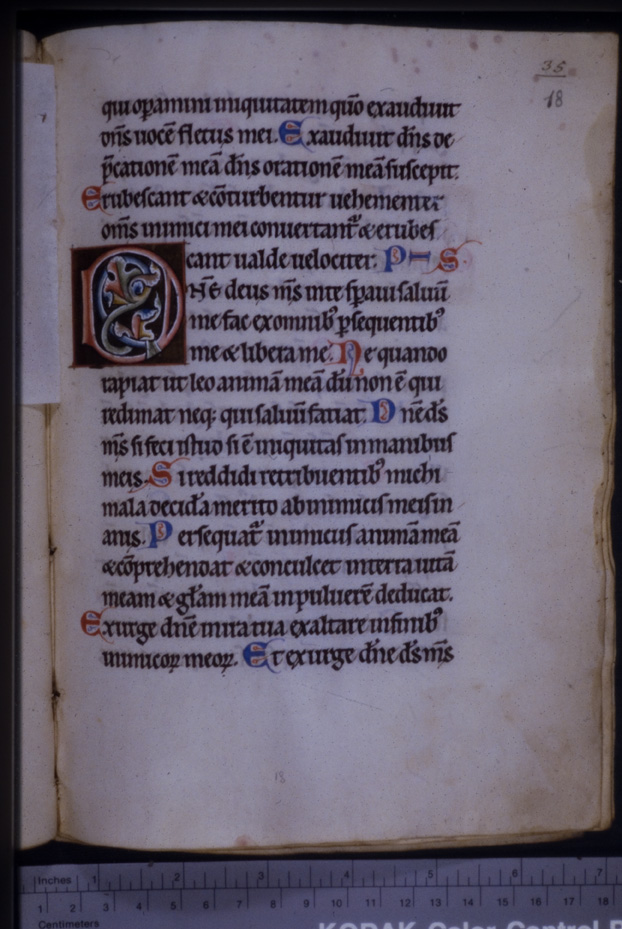 35
18
qui op̲amini iniquitatem qm̄o exaudiuit
dn̄s uocē fletus mei. Exaudiuit dn̄s de
p̄cationē meā dn̄s orationē meā suscepit.
Erubescant & cōturbentur uehementer
om̄s inimici mei conuertant᷑ & erubes
cant ualde uelociter. PS
DNĒ deus m̄s in te sp̲aui saluū
me fac ex omnibꝰ p̲sequentibꝰ
me & libera me. Ne quando
rapiat ut leo animā meā dū non ē qui
redimat neq; qui saluū faciat. Dnē d̄s
m̄s si feci istuo si ē iniquitas in manibus
meis. Si reddidi retribuentibꝰ michi
mala decidā merito ab inimicis meis in
anis. Persequat᷑ inimicus animā meā
& cōprehendat & conculcet in terra uitā
meam & gl̄am meā in puluerē deducat.
Exurge dnē in ira tua exaltare in finibꝰ
inimicoꝝ meoꝝ. Et exurge dn̄e d̄s m̄s
18
Inches 1 2 3 4 5 6 7
1 2 3 4 5 6 7 8 9 10 11 12 13 14 15 16 17 18
Centimeters
KODAK Color Control P